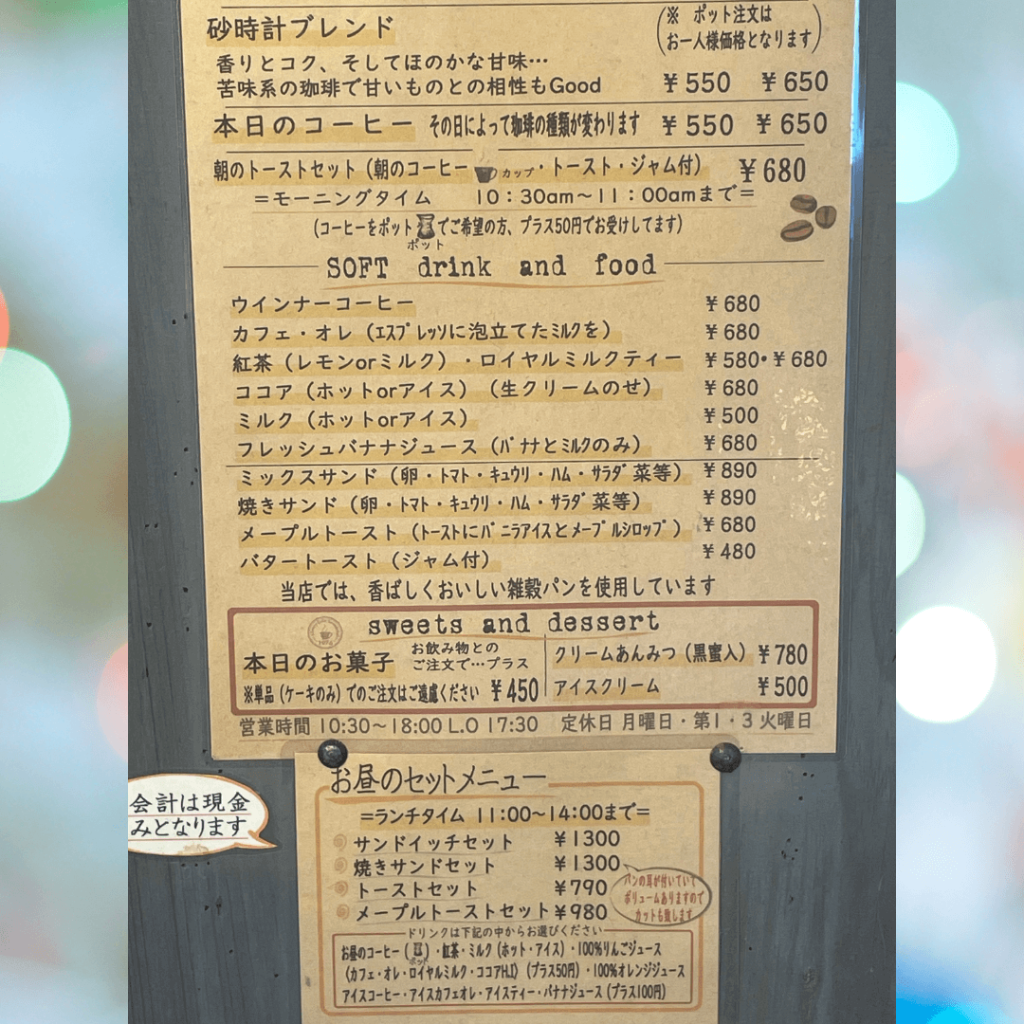 砂時計ブレンド
(※ ポット注文は
お一人様価格となります)
香りとコク、そしてほのかな甘味…
苦味系の珈琲で甘いものとの相性もGood ¥550 ¥650
本日のコーヒー その日によって珈琲の種類が変わります ¥550 ¥650
朝のトーストセット(朝のコーヒー カップ・トースト・ジャム付) ¥680
=モーニングタイム 10:30am~11:00amまで=
(コーヒーをポットでご希望の方、プラス50円でお受けしてます)
ポット
SOFT drink and food
ウインナーコーヒー ¥680
カフェ・オレ(エスプレッソに泡立てたミルクを) ¥680
紅茶(レモンorミルク)・ロイヤルミルクティー ¥580・¥680
ココア(ホットorアイス)(生クリームのせ) ¥680
ミルク(ホットorアイス) ¥500
フレッシュバナナジュース(バナナとミルクのみ) ¥680
ミックスサンド(卵・トマト・キュウリ・ハム・サラダ菜等) ¥890
焼きサンド(卵・トマト・キュウリ・ハム・サラダ菜等) ¥890
メープルトースト(トーストにバニラアイスとメープルシロップ) ¥680
バタートースト(ジャム付) ¥480
当店では、香ばしくおいしい雑穀パンを使用しています
sweets and dessert
本日のお菓子 お飲み物との
ご注文で…プラス
※単品(ケーキのみ)でのご注文はご遠慮ください ¥450
クリームあんみつ(黒蜜入) ¥780
アイスクリーム ¥500
営業時間 10:30~18:00 L.O 17:30 定休日 月曜日・第1・3火曜日
会計は現金
みとなります
お昼のセットメニュー
=ランチタイム 11:00~14:00まで=
サンドイッチセット ¥1300
焼きサンドセット ¥1300
トーストセット ¥790
メープルトーストセット ¥980
パンの耳が付いていて
ボリュームありますので
カットも致します
ドリンクは下記の中からお選びください
お昼のコーヒー( )・紅茶・ミルク(ホット・アイス)・100%りんごジュース
ポット
(カフェ・オレ・ロイヤルミルク・ココアH.I)(プラス50円)・100%オレンジジュース
アイスコーヒー・アイスカフェオレ・アイスティー・バナナジュース(プラス100円)